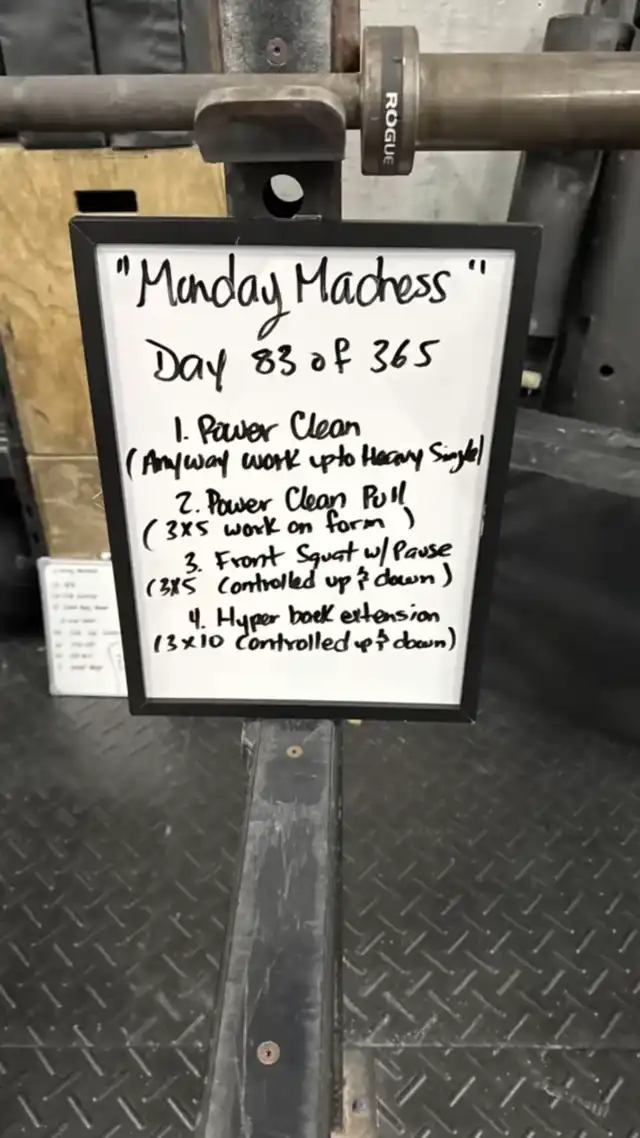 ROGUE
"Monday Madness"
Day 83 of 365
1. Power Clean
(Anyway work up to Heavy Single)
2. Power Clean Pull
(3x5 work on form)
3. Front Squat w/ Pause
(3x5 Controlled up & down)
4. Hyper back extension
(3x10 Controlled up & down)